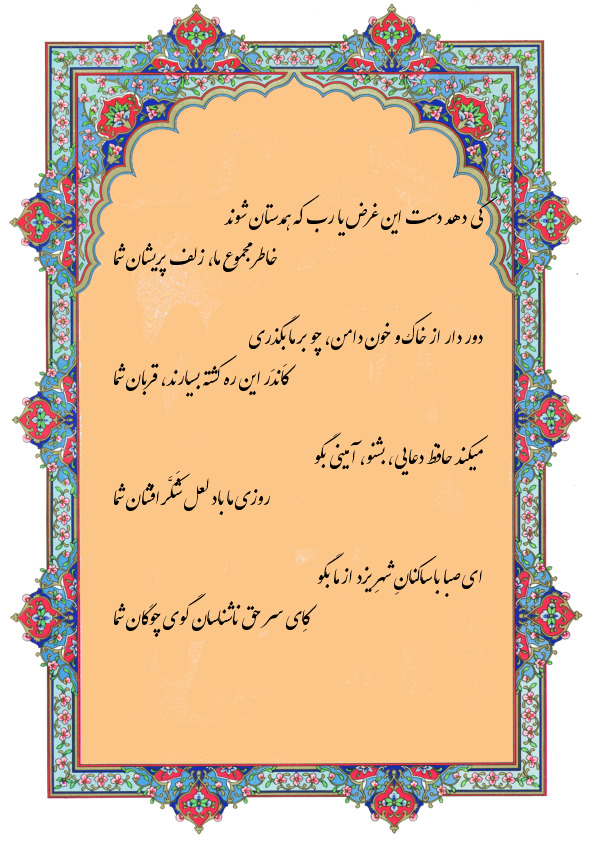 کی دهد دست این غرض یا رب که همدستان شوند
خاطر مجموع ما، زلف پریشان شما
دور دار از خاک و خون دامن، چو بر ما بگذری
کاندَر این ره کشته بسیارند، قربان شما
میکند حافظ دعایی، بشنو، آمینی بگو
روزی ما باد لعل شَکَّر افشان شما
ای صبا با ساکنانِ شهرِ یزد از ما بگو
کِای سر حق ناشناسان گوی چوگان شما